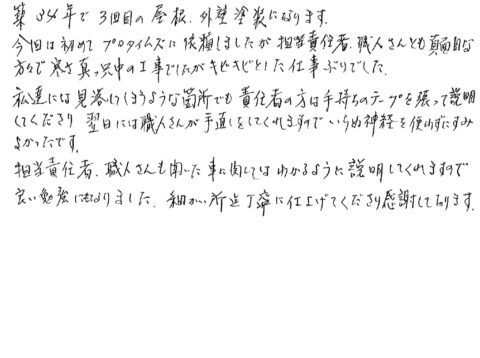 築34年で3回目の屋根、外壁塗装になります。
今回は初めてプロタイムズに依頼しましたが担当責任者、職人さんとも真面目な
方々で寒さ真っ只中の工事でしたがキビキビとした仕事ぶりでした。
私達には見落してしまうような箇所でも責任者の方は手持ちのテープを張って説明
してくださり 翌日には職人さんが手直しをしてくれますのでいらぬ神経を使わずにすみ
よかったです。
担当責任者、職人さんも聞いた事に関してはわかるように説明してくれますので
良い勉強にもなりました。細かい所迄丁寧に仕上げてくださり感謝しております。